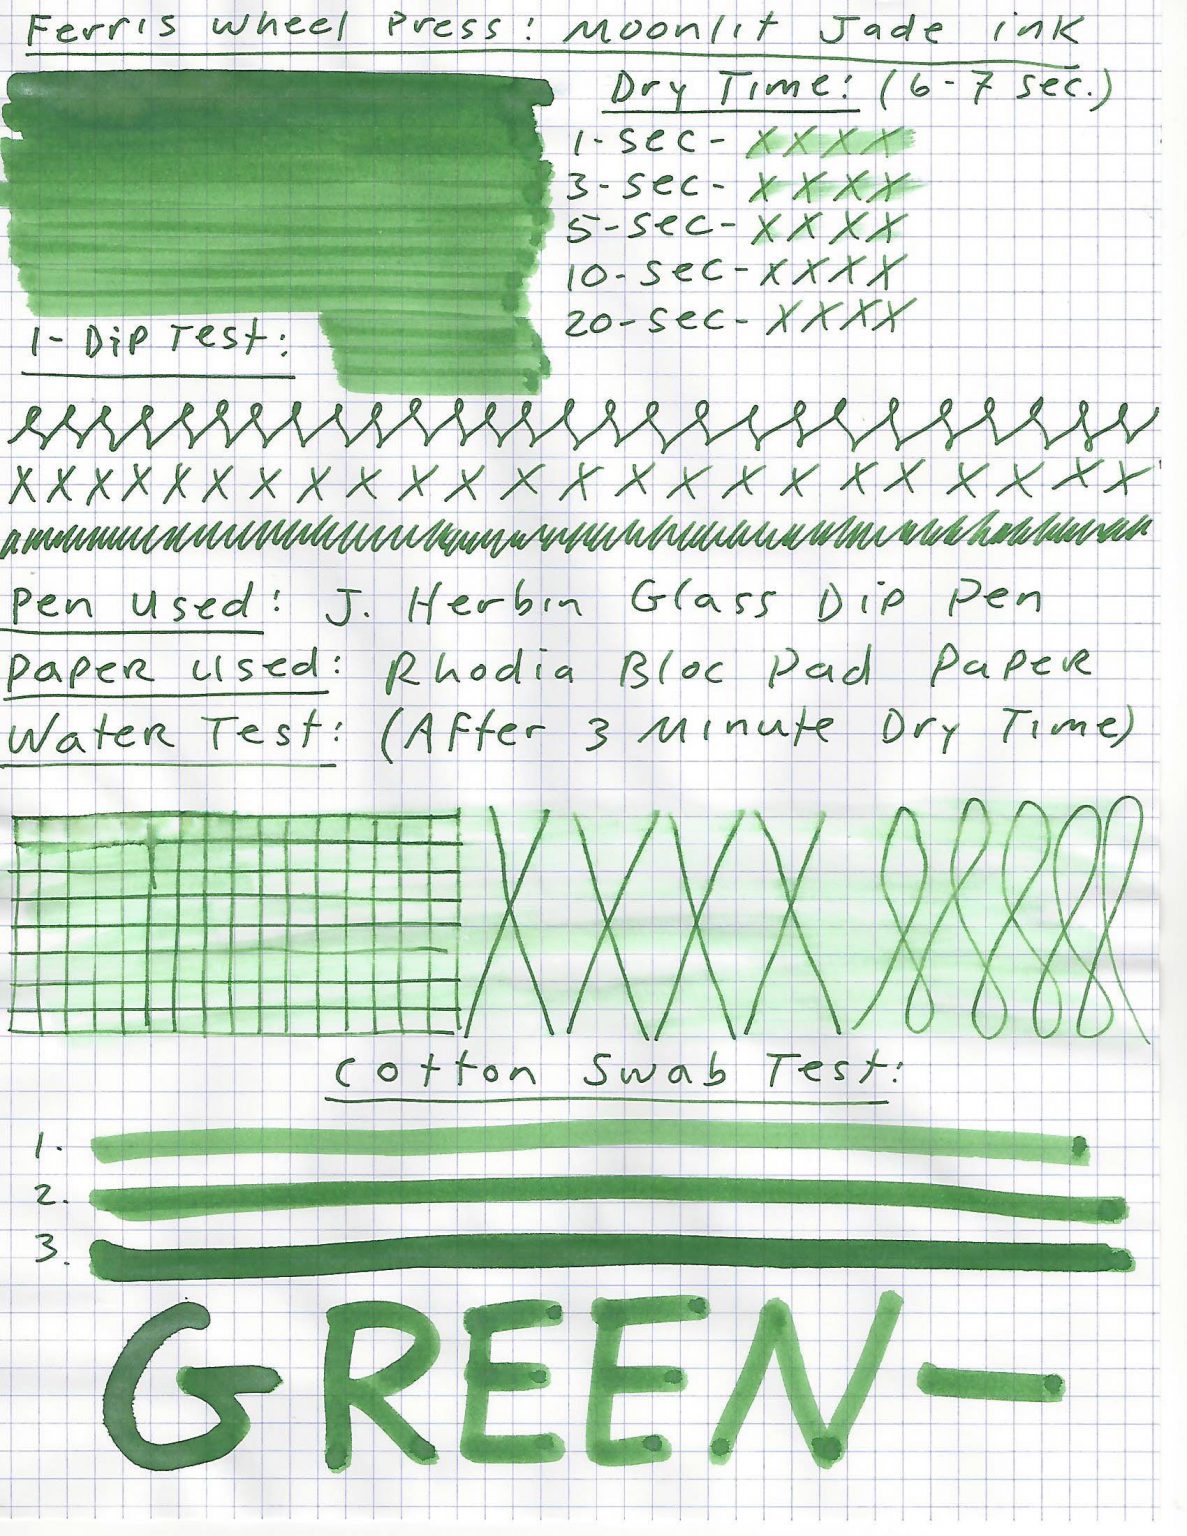 Ferris Wheel Press: Moonlit Jade ink
Dry Time: (6-7 sec.)
1-sec- XXXX
3-sec- XXXX
5-sec- XXXX
10-sec- XXXX
20-sec- XXXX
1-Dip Test:
XXXXXXXXXXXXXXXXXXXXXXXX
Pen Used: J. Herbin Glass Dip Pen
Paper Used: Rhodia Bloc Pad Paper
Water Test: (After 3 Minute Dry Time)
XXXX
Cotton Swab Test:
1.
2.
3.
GREEN-